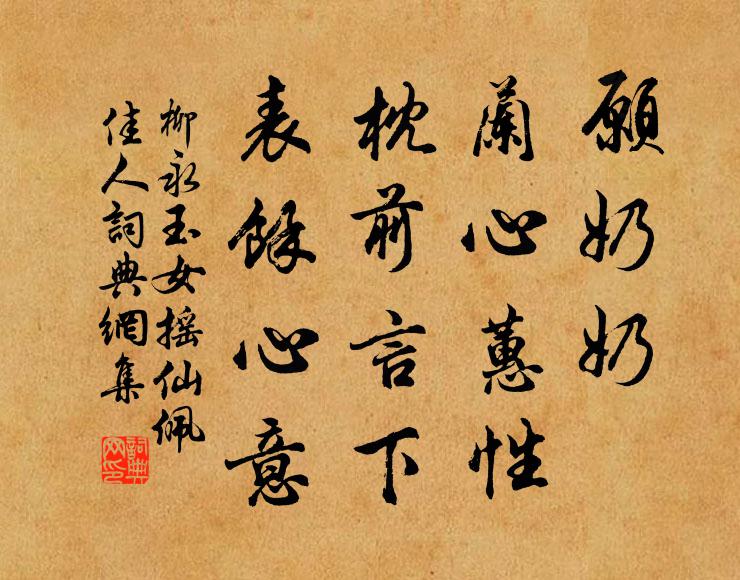 願奶奶
蘭心蕙性
枕前言下
表餘心意
柳永玉女搖仙佩
佳人詞典網集
詞典
网印